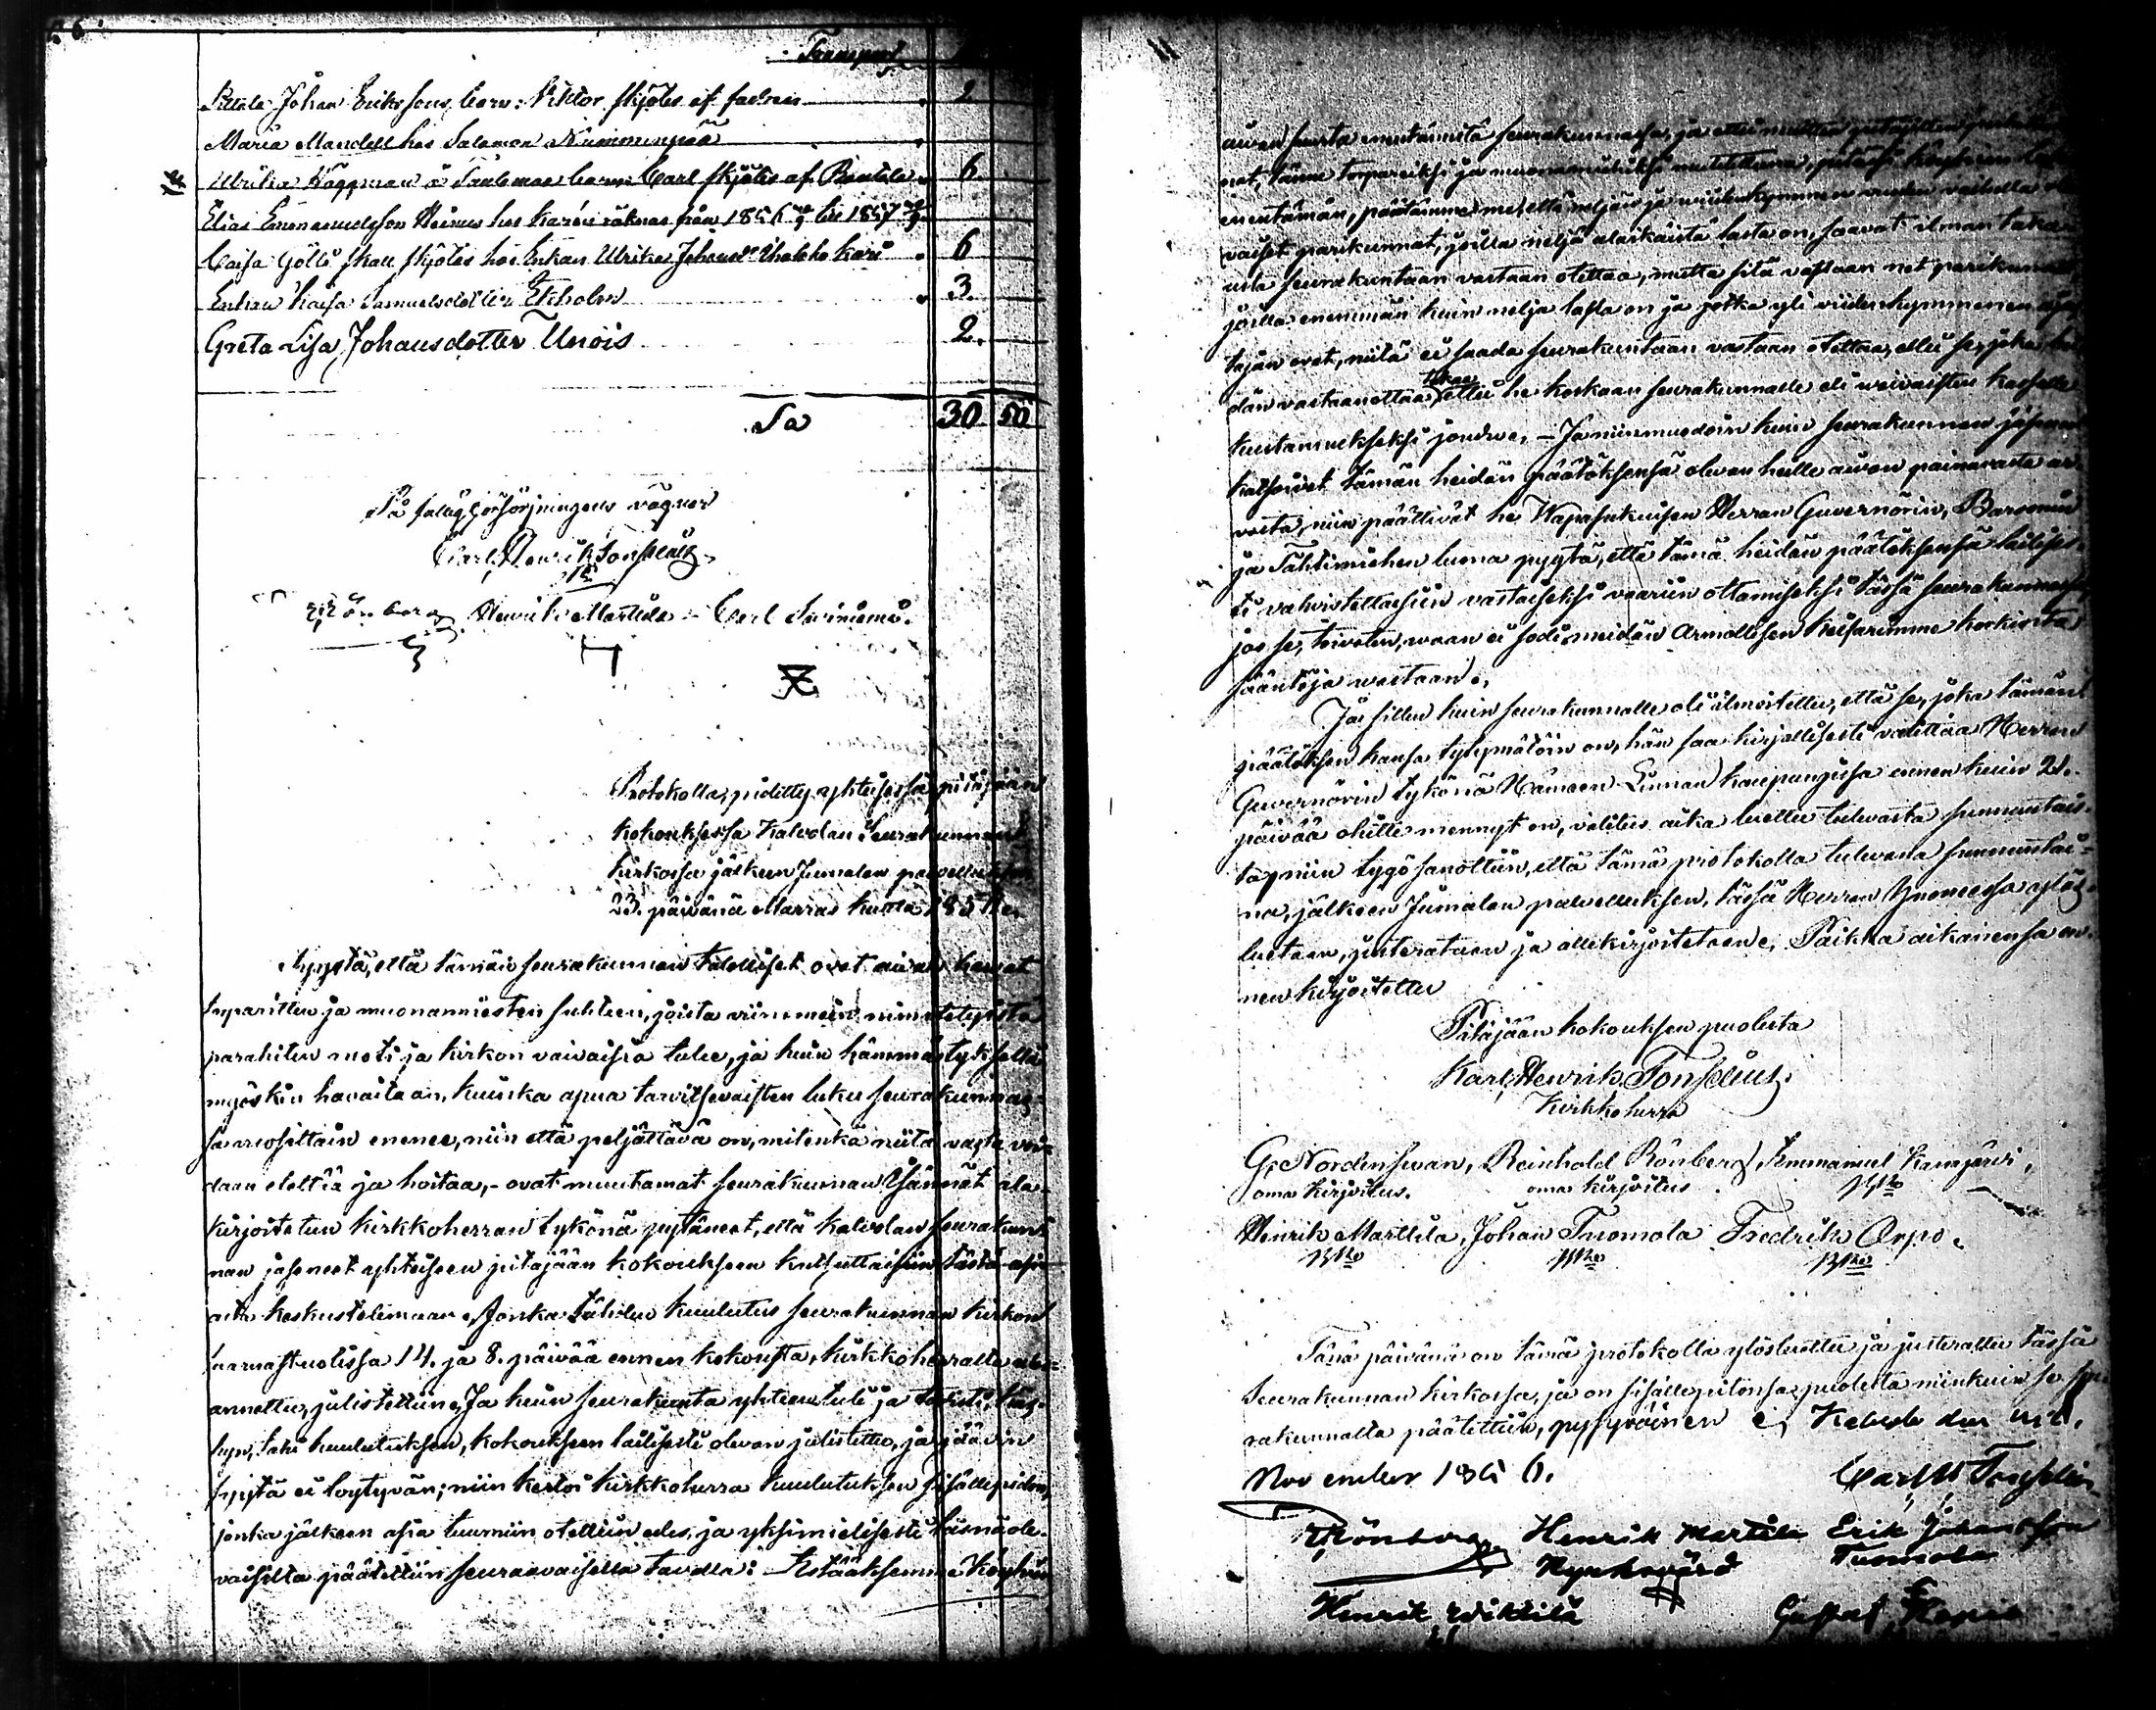 Transport
Pillala Johan Erikssons barn: Viktor skjötes af fadren 2
Maria Mandell hos Salomon Nummenpää
Ulrika Häggman å Taulemaa barn Carl skjötes af Ranttila 6.
Elias Emmanuelsson Heinu hos Karén räknas från 1856 till 1857
Caisa Gölli skall skjötes hos Enkan Ulrika Johansdr Uhalcko Kari 6
Enkan Kaisa Samuelsdotter Ekholm 3.
Greta Lisa Johansdotter Unois 2.
Sa 30 50
På fattigförsörjningens vägnar
Carl Henrik Tonselius
R. Rönberg Henrik Marttila Carl Saviniemi.
Protokolla, piditty yhteisessä pitäjään
kokouksessa Kalvolan Seurakunnan
kirkossa jälkeen Jumalan palvelluksen
23. päivänä Marras kuulla 1856.
Syystä, että tämän seurakunnan talolliset ovat aivan
torparitten ja muonamiesten suhteen, joista viimmein nimitetyistä
parahiten moti ja kirkon vaivaisia tulee, ja kuin hämmästyksellä
myöskin havaitaan, kuinka apua tarvitsevaisten luku seurakunnas-
sa vuosittain enenee, niin että peljättävä on, mitenkä niitä vasta voi-
daan elättää ja hoitaa, - ovat muutamat seurakunnan Isännät ala-
kirjoitetun kirkkoherran tykönä pytäneet, että Kalvolan seurakun-
nan jäsenet yhteiseen pitäjään kokoukseen kutsuttaisiin tästä asi-
asta keskustelemaan. Jonka tähden kuulutus seurakunnan kirkon
saarnastuolissa 14. ja 8. päivää ennen kokousta, kirkkoherralta
annettu, julistettiin. Ja kuin seurakunta yhteen tuli ja
kuulutuksen, kokouksen laillisesti olevan julistettu, ja jäävin
syytä ei löytyvän; niin kertoi kirkkoherra kuulutuksen sisällepidon,
jonka jälkeen asia tuumiin otettiin edes, ja yksimielisesti läsnäole-
vaisilta päätettiin seuraavaisella tavalla: Estääksemme köyhien
aivan suurta enentämistä seurakunnassa, ja että muitten pitäjitten
nat, tänne torpareiksi ja muonamiehiksi muutettuna, pitäisi köyhien
enentämän, päätämme me, että neljän ja viidenkymmenen vuoden vaihella
vaiset parikunnat, joilla neljä alaikäistä lasta on, saavat ilman taka-
usta seurakuntaan vastaan otettaa, mutta sitä vastaan net parikunnat
joilla enemmän kuin neljä lasta on ja jotka yli viidenkymmenen ajas-
tajan ovat, niitä ei saada seurakuntaan vastaan otettaa, ellei se, joka hei-
dän vastaanottaa, takaa ettei he koskaan seurakunnalle eli waivaisten kassalle
kustannukseksi joudu. - Ja niinmuodoin kuin seurakunnan jäsenet
katsoivat tämän heidän päätöksensä olevan heille aivan painavasta ar-
vosta, niin päättivät he, Wapasukuisen Herran Guvernörin, Baroonin
ja Tähtimiehen luona pyytä, että tämä heidän päätöksensä laillises-
ti vahvistettaisiin vastaiseksi vaariin ottamiseksi tässä seurakunnassa
jos se, toivoten, waan ei sodi meidän Armollisen Keisarimme korkioita
sääntöjä wastaan.
Ja sitten kuin seurakunnalle oli ilmoitettu, että se, joka tämän
päätöksen kansa tytymätöin on, hän saa kirjallisesti valittaa Herran
Guvernörin tykönä Hämeen Linnan kaupungissa ennen kuin 21.
päivää ohitte mennyt on, valitus aika luettu tulevasta sunnuntais-
ta, niin tygö sanottiin, että tämä protokolla tulevana sunnuntai-
na, jälkeen Jumalan palvelluksen, tässä Herran Huoneessa ylös
luetaan, justerataan ja allekirjoitetaan. Paikka aikanensa en-
nen kirjoitettu
Pitäjään kokouksen puolesta
Karl Henrik Tonselius.
Kirkkoherra
G. Nordenswan, Reinhold Rönberg, Emmanuel Kanajärvi,
oma kirjoitus. oma kirjoitus
Henrik Marttila, Johan Tuomola Fredrik Orpo.
Tänä päivänä on tämä protokolla ylösluettu ja justerattu tässä
Seurakunnan kirkossa, ja on sisällepitonsa puolesta niinkuin se seu-
rakunnalta päätettiin, pysyväinen. Kalvola den
November 1856. Carl H Tonselius
R. Rönberg Henrik Martila Erik Johansson
Nyckovärd Tuomola
Henrik Wiktilä Gustaf